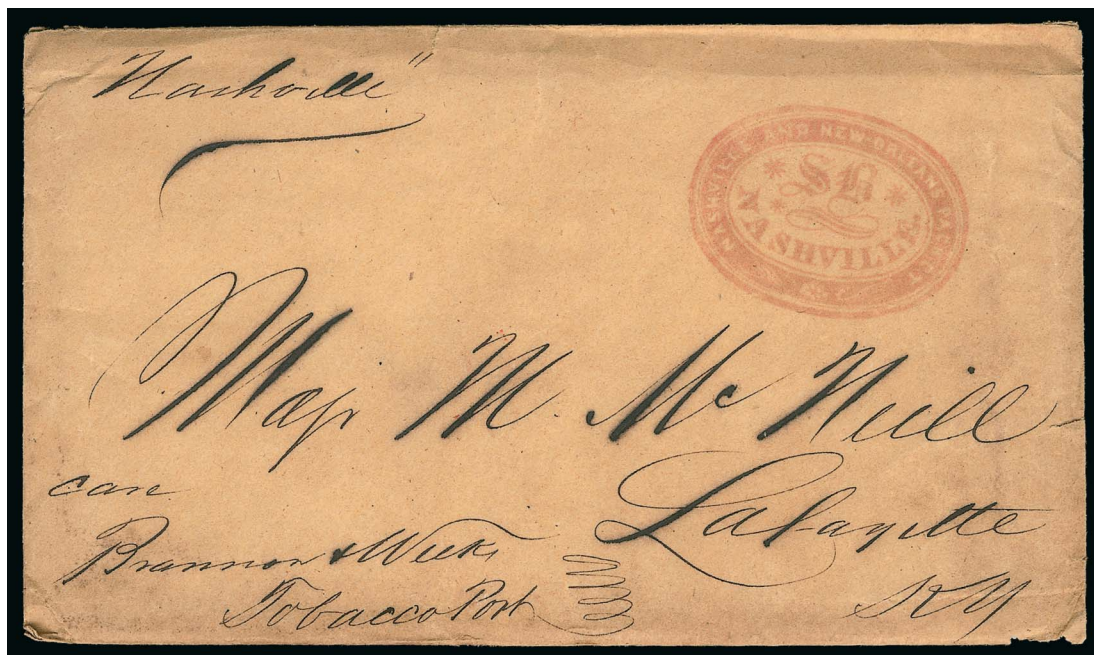 "Nashville"
NASHVILLE AND NEW ORLEANS PACKET
NASHVILLE.
Maj M. McNeill
Lafayette
KY
care
Brannon & Weeks
Tobacco Port